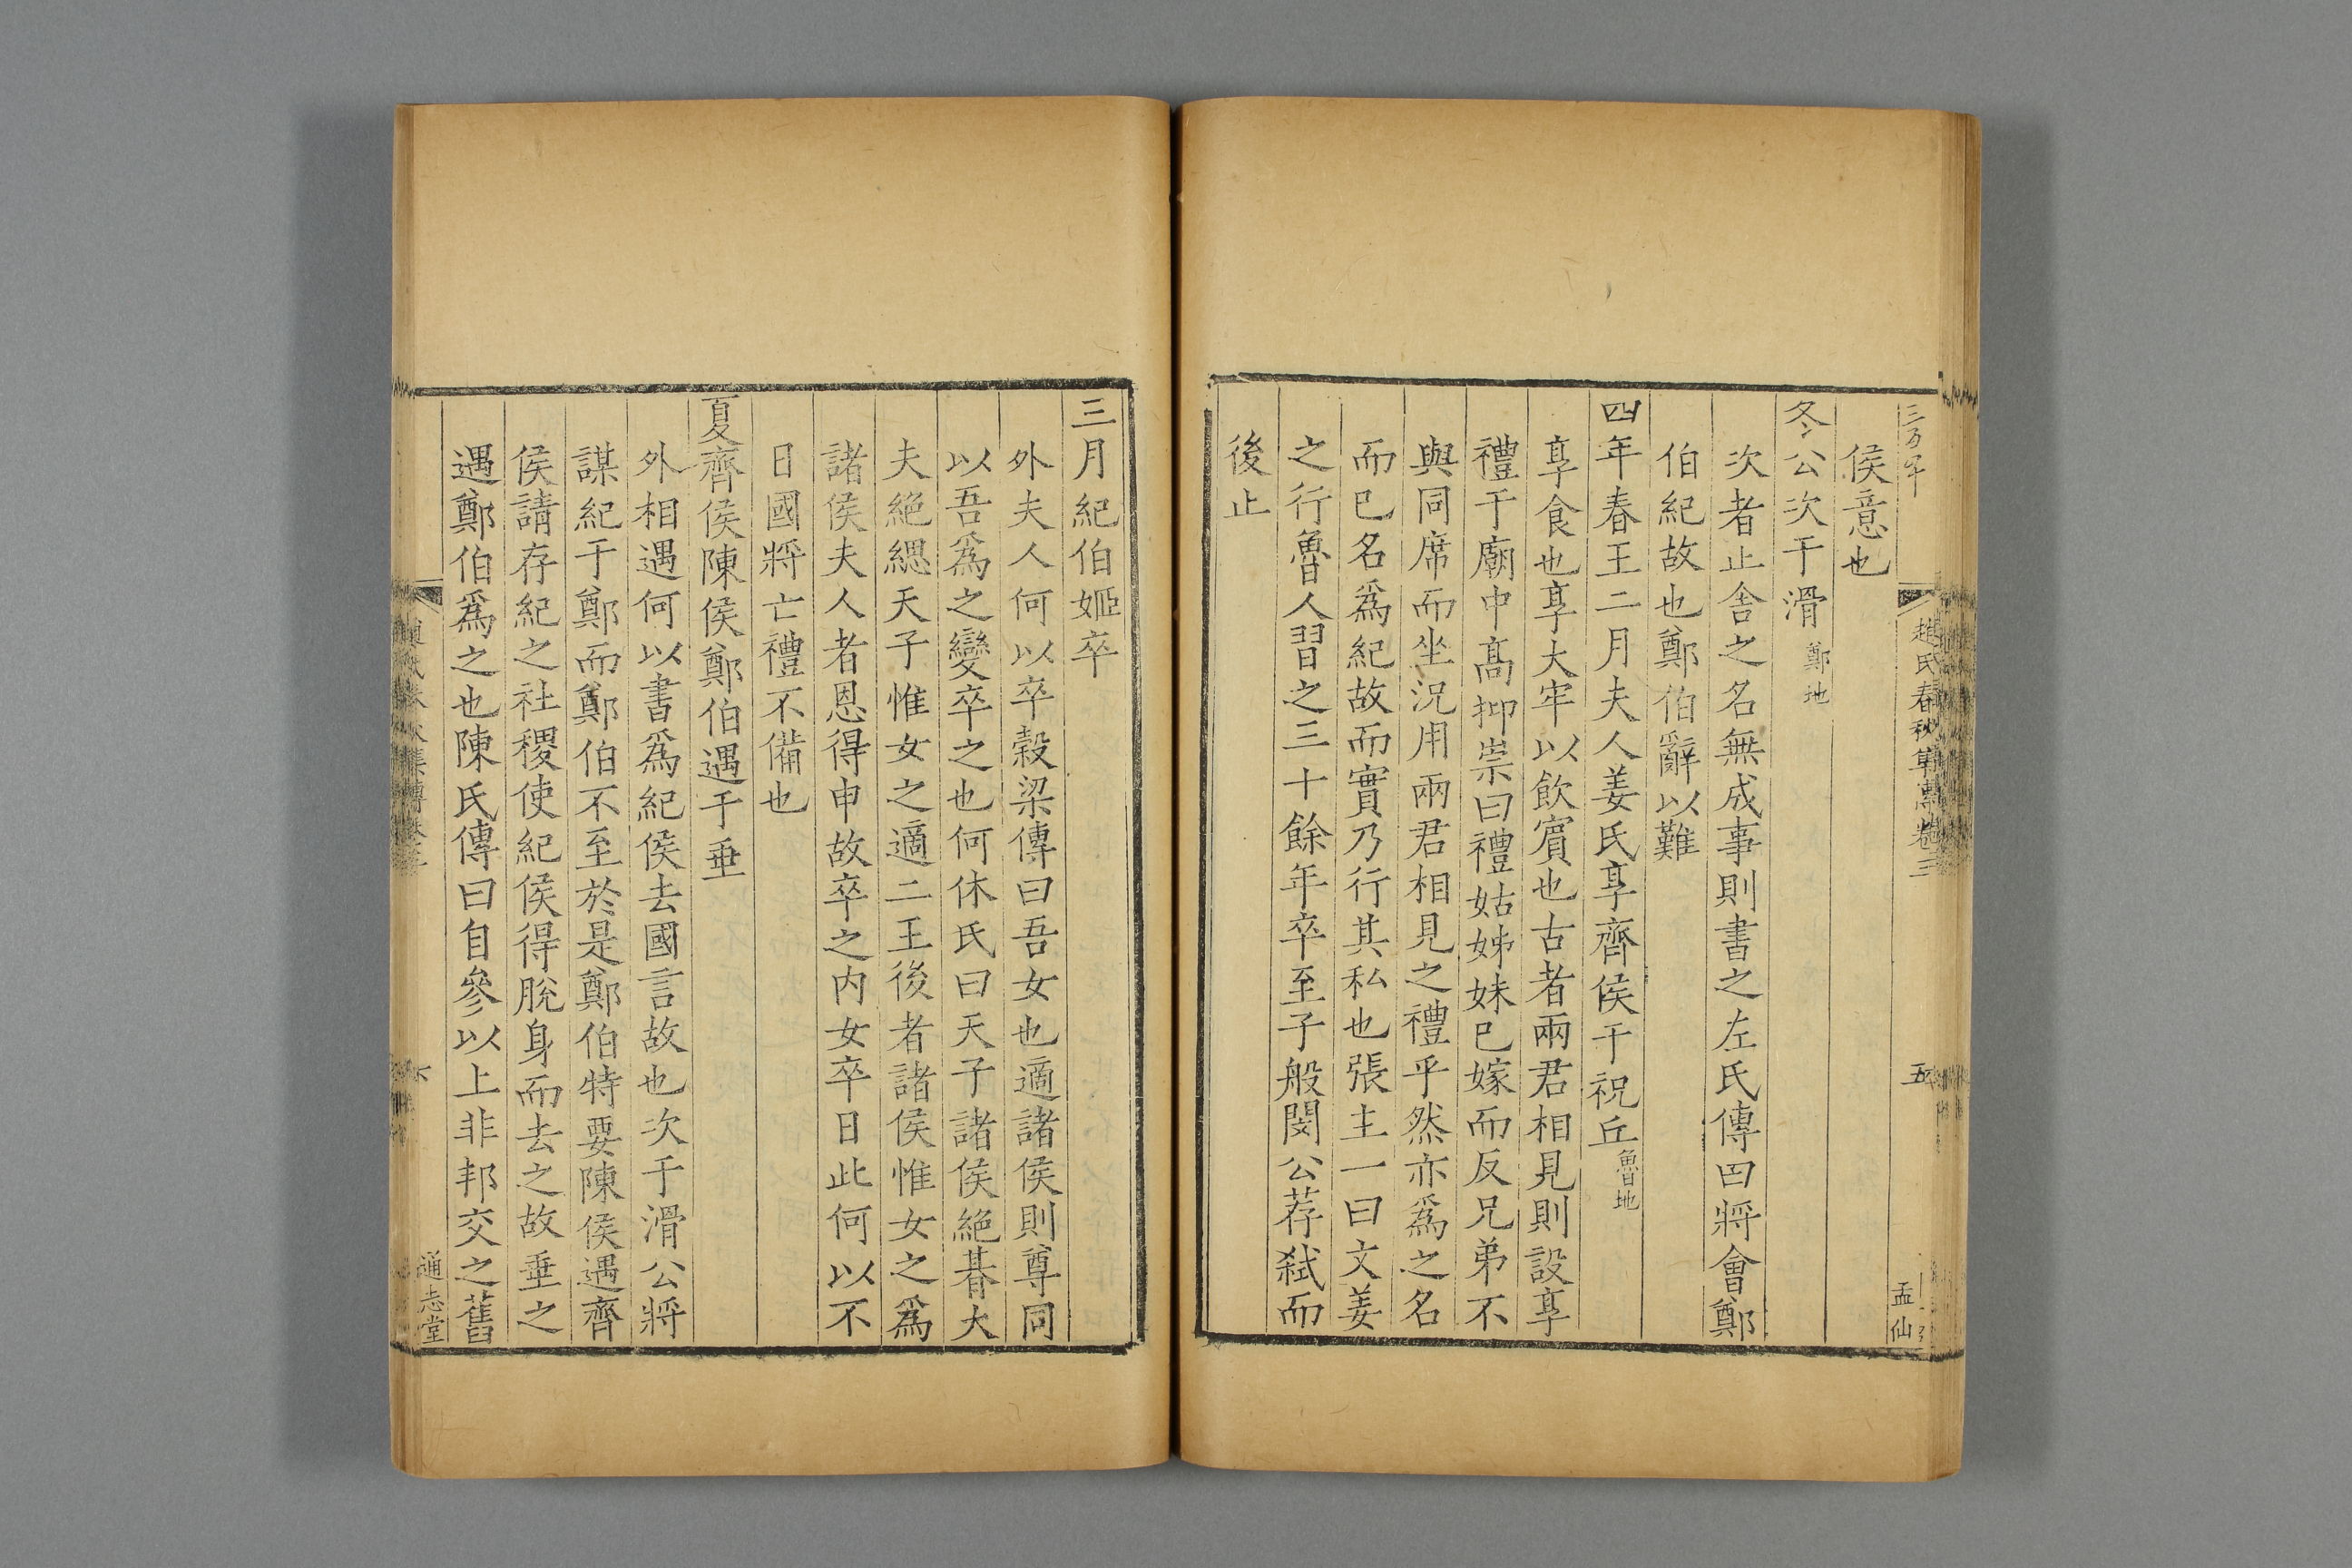 趙氏春秋集傳卷三
五
孟仙
侯意也
冬公次于滑鄭地
次者止舍之名無成事則書之左氏傳曰將會鄭
伯紀故也鄭伯辭以難
四年春王二月夫人姜氏享齊侯于祝丘魯地
享食也享大牢以飲賓也古者兩君相見則設享
禮于廟中髙抑崇曰禮姑姊妹已嫁而反兄弟不
與同席而坐況用兩君相見之禮乎然亦爲之名
而已名爲紀故而實乃行其私也張主一曰文姜
之行魯人習之三十餘年卒至子般閔公荐弑而
後止
三月紀伯姬卒
外夫人何以卒榖梁傳曰吾女也適諸侯則尊同
以吾爲之變卒之也何休氏曰天子諸侯絶朞大
夫絶緦天子惟女之適二王後者諸侯惟女之爲
諸侯夫人者恩得申故卒之内女卒日此何以不
日國將亡禮不備也
夏齊侯陳侯鄭伯遇于垂
外相遇何以書爲紀侯去國言故也次于滑公將
謀紀于鄭而鄭伯不至於是鄭伯特要陳侯遇齊
侯請存紀之社稷使紀侯得脫身而去之故垂之
遇鄭伯爲之也陳氏傳曰自參以上非邦交之舊
六
通志堂